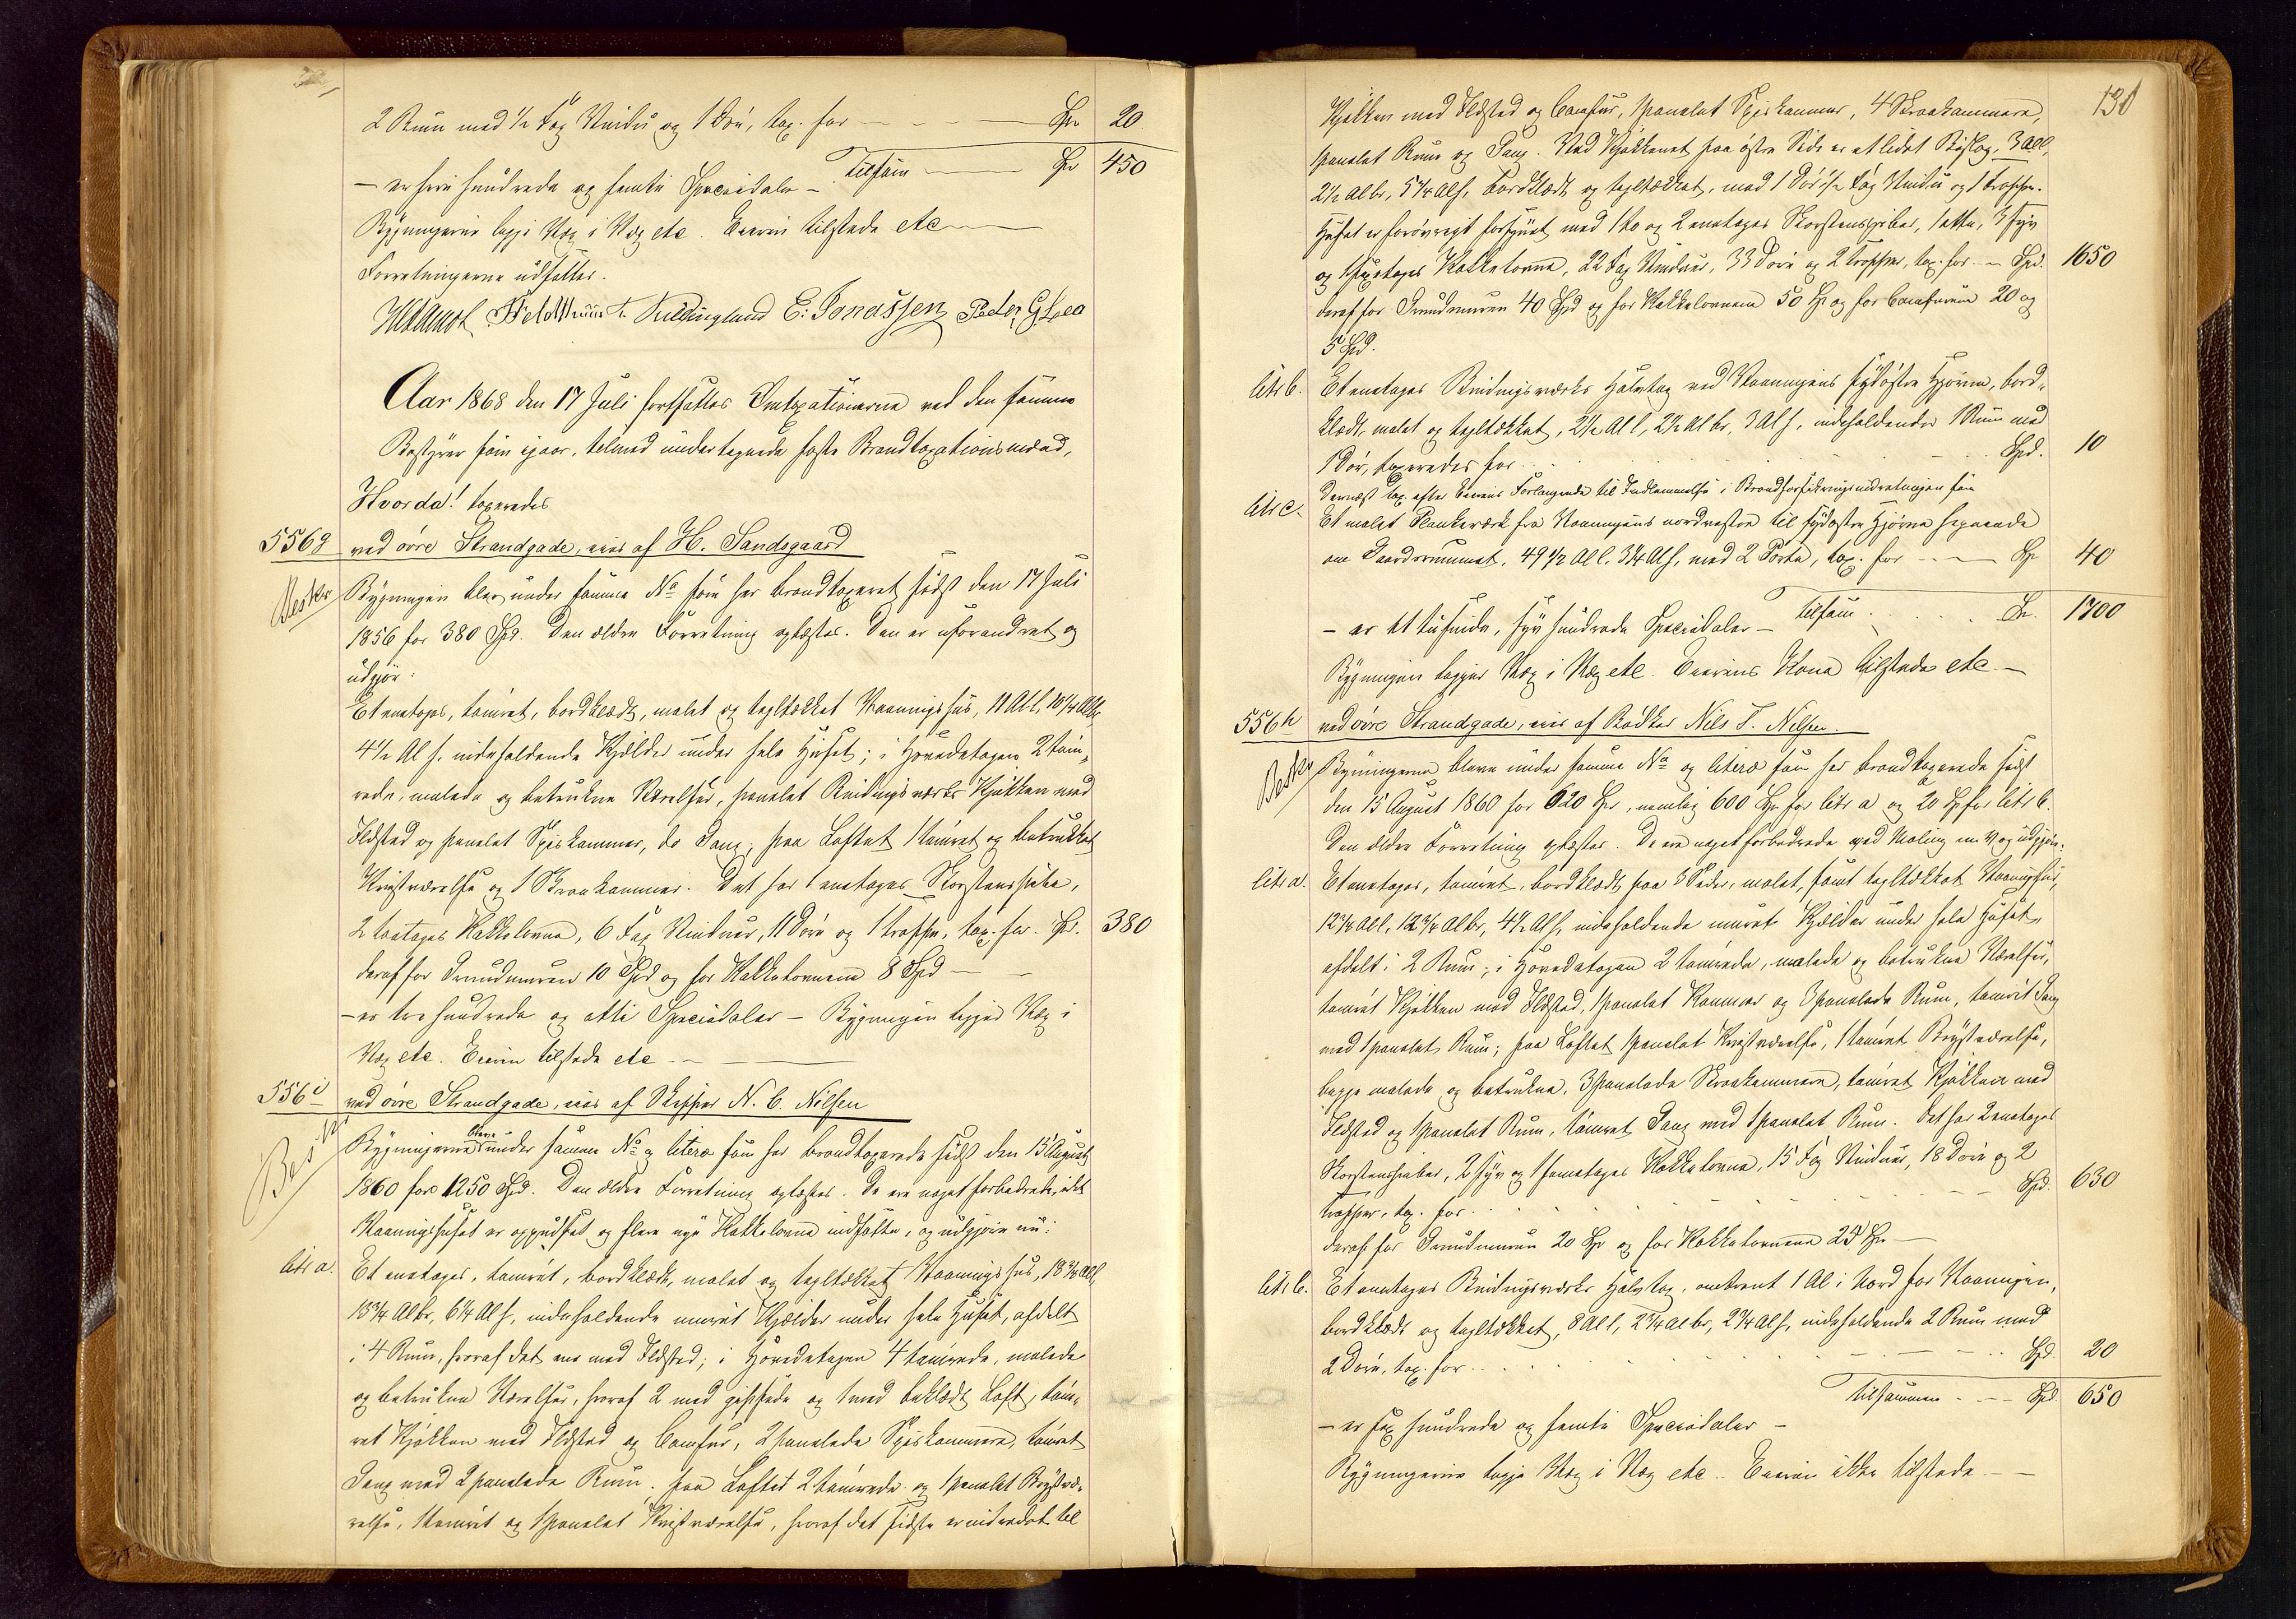 2 Rum med 1/2 Fag Vindu og 1 Dør, tax. for — — — Spd 20
Tilsam — Spd 450
— er fire hundrede og femti Speciedaler —
Bygningerne ligge Væg i Væg etc. Eieren tilstede etc —
Forretningerne udsattes.
E. Jonassen Peder G. Lea
Aar 1868 den 17 Juli fortsattes Omtaxationerne ved den samme
Bestyrer som igaar, tilmed undertegnede faste Brandtaxationsmænd,
Hvorda! taxeredes
556g ved øvre Strandgade, eies af H. Sandsgaard
Beskr
Bygningen blev under samme No som her brandtaxeret sidst den 17 Juli
1856 for 380 Spd. Den ældre Forretning oplæstes. Den er uforandret og
udgjør:
Et enetages, tømret, bordklædt, malet og tegltækket Vaaningshus, 11 Al l, 10 1/4 Al br
4 1/2 Al h. indeholdende Kjelder under hele Huset; i Hovedetagen 2 tøm-
rede, malede og betrukne Værelser, panelet Bindingsværks Kjøkken med
Ildsted og panelet Spiskammer, do Gang; paa Loftet 1 tømret og betrukket
Kvistværelse og 1 Skraakammer. Det har 1 enetages Skorstenspibe,
2 toetages Kakkelovne, 6 Fag Vinduer, 11 Døre og 1 Trappe, tax. for Spd. 380
deraf for Grundmuren 10 Spd og for Kakkelovnene 8 Spd —
— er tre hundrede og otti Speciedaler — Bygningen ligger Væg i
Væg etc. Eieren tilstede etc —
556i ved øvre Strandgade, eies af Skipper N. C. Nilsen
Beskr
Bygningerne bleve under samme No og litera som her brandtaxerede sidst den 15 August
1860 for 1250 Spd. Den ældre Forretning oplæstes. De ere noget forbedrede, idet
Vaaningshuset er oppudset og flere nye Kakkelovne indsatte, og udgjøre nu:
litr a. Et enetages, tømret, bordklædt, malet og tegltækket Vaaningshus, 18 3/4 Al l,
13 3/4 Al br, 6 1/4 Al h, indeholdende muret Kjelder under hele Huset, afdelt
i 4 Rum, hvoraf det ene med Ildsted; i Hovedetagen 4 tømrede, malede
og betrukne Værelser, hvoraf 2 med gipsede og 1 med beklædt Loft, tøm-
ret Kjøkken med Ildsted og Comfur, 2 panelede Spiskammere, tømret
Gang med 2 panelede Rum. paa Loftet 2 tømrede og 1 panelet Brystvæ-
relse, 1 tømret og 1 panelet Kvistværelse, hvoraf det sidste er indredet til
130
Kjøkken med Ildsted og Comfur, 1 panelet Spiskammer, 4 Skraakammere,
1 panelet Rum og Gang. Ved Kjøkkenet paa østre Side er et lidet Bislag, 3 Al l,
2 1/2 Al br, 5 1/4 Al h, bordklædt og tegltækket, med 1 Dør, 1/2 Fag Vindu og 1 Trappe.
Huset er forøvrigt forsynet med 1 to og 2 enetages Skorstenspiber, 1 otte, 3 syv
og 1 sextages Kakkelovne, 22 Fag Vinduer, 33 Døre og 2 Trapper, tax. for — Spd. 1650
deraf for Grundmuren 40 Spd og for Kakkelovnene 50 Spd og for Comfurene 20 og
5 Spd.
litr b. Et enetages Bindingsværks Halvtag ved Vaaningens sydøstre Hjørne, bord-
klædt, malet og tegltækket, 2 1/2 Al l, 2 1/2 Al br, 3 Al h, indeholdende 1 Rum med
1 Dør, taxeredes for Spd. 10
Dernæst tax. efter Eierens Forlangende til Indlemmelse i Brandforsikringsindretningen som
litr c. Et malet Plankeværk fra Vaaningens nordvestre til sydøstre Hjørne hegnende
om Gaardsrummet, 49 1/2 Al l. 3 1/4 Al h, med 2 Porte, tax. for — Spd 40
Tilsam Spd. 1700
— er et tusinde, syv hundrede Speciedaler —
Bygningen ligger Væg i Væg etc. Eierens Kone tilstede etc. —
556h ved øvre Strandgade, eies af Bødker Nils T. Nilsen.
Beskr
Bygningerne bleve under samme No og litera som her brandtaxerede sidst
den 15 August 1860 for 620 Spd, nemlig 600 Spd for litr a og 20 Spd for litr b.
Den ældre Forretning oplæstes. De ere noget forbedrede ved Maling m. v. og udgjøre:
litr a. Et enetages, tømret, bordklædt paa 3 Sider, malet, samt tegltækket Vaaningshus,
12 3/4 Al l, 12 3/4 Al br, 4 1/2 Al h, indeholdende muret Kjelder under hele Huset,
afdelt i 2 Rum; i Hovedetagen 2 tømrede, malede og betrukne Værelser,
tømret Kjøkken med Ildsted, 1 panelet Kammer og 3 panelede Rum, tømret Gang
med 1 panelet Rum; paa Loftet 1 panelet Kvistværelse, 1 tømret Brystværelse,
begge malede og betrukne. 3 panelede Skraakammere, tømret Kjøkken med
Ildsted og 1 panelet Rum, tømret Gang med 1 panelet Rum. Det har 2 enetages
Skorstenspiber, 2 syv og 1 femetages Kakkelovne, 15 Fag Vinduer, 18 Døre og 2
Trapper, tax. for Spd. 630
deraf for Grundmuren 20 Spd og for Kakkelovnene 25 Spd —
litr b. Et enetages Bindingsværks Halvtag, omtrent 1 Al i Nord for Vaaningen,
bordklædt og tegltækket, 8 Al l, 2 3/4 Al br, 2 3/4 Al h, indeholdende 2 Rum med
2 Døre, tax. for Spd. 20
Tilsammen — Spd. 650
— er sex hundrede og femti Speciedaler —
Bygningerne ligge Væg i Væg etc. Eieren ikke tilstede —